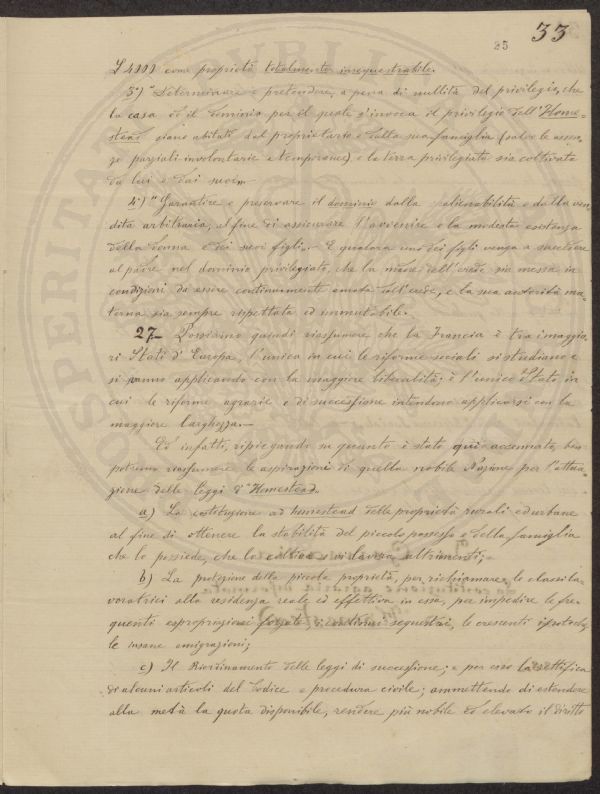 25 33
£ 4000 come proprietà totalmente insequestrabile.
3°) "Determinare e pretendere, a pena di nullità del privilegio, che
la casa ed il dominio per il quale s'invoca il privilegio dell'"Home-
stead" siano abitati dal proprietario e dalla sua famiglia (salvo le assen-
ze parziali involontarie e temporanee) e la terra privilegiata sia coltivata
da lui e dai suoi.
4°) "Garantire e preservare il dominio dalla alienabilità e dalla ven-
dita arbitraria, al fine di assicurare l'avvenire e la modesta esistenza
della donna e dei suoi figli. E qualora uno dei figli venga a succedere
al padre nel dominio privilegiato, che la madre dell'erede sia messa in
condizioni da essere continuamente amata dall'erede, e la sua autorità ma-
terna sia sempre rispettata ed immutabile.
27 Possiamo quindi riassumere che la Francia è tra i maggio-
ri Stati d'Europa, l'unica in cui le riforme sociali si studiano e
si vanno applicando con la maggiore liberalità; è l'unico Stato in
cui le riforme agrarie e di successione intendono applicarsi con la
maggiore larghezza.
Ed infatti, ripiegando su quanto è stato qui accennato, ben
potremo riassumere le aspirazioni di quella nobile Nazione per l'attua-
zione delle leggi d'"Homestead".
a) La costituzione ad homestead delle proprietà rurali ed urbane
al fine di ottenere la stabilità del piccolo possesso e della famiglia
che lo possiede, che lo coltiva o vi lavora altrimenti;
b) La protezione della piccola proprietà, per richiamare le classi la-
voratrici alla residenza reale ed effettiva in essa, per impedire le fre-
quenti espropriazioni forzate, i continui sequestri, le crescenti ipoteche,
le insane emigrazioni;
c) Il Riordinamento delle leggi di successione; e per esso la rettifica
di alcuni articoli del Codice e procedura civile; ammettendo di estendere
alla metà la quota disponibile, rendere più nobile ed elevato il diritto